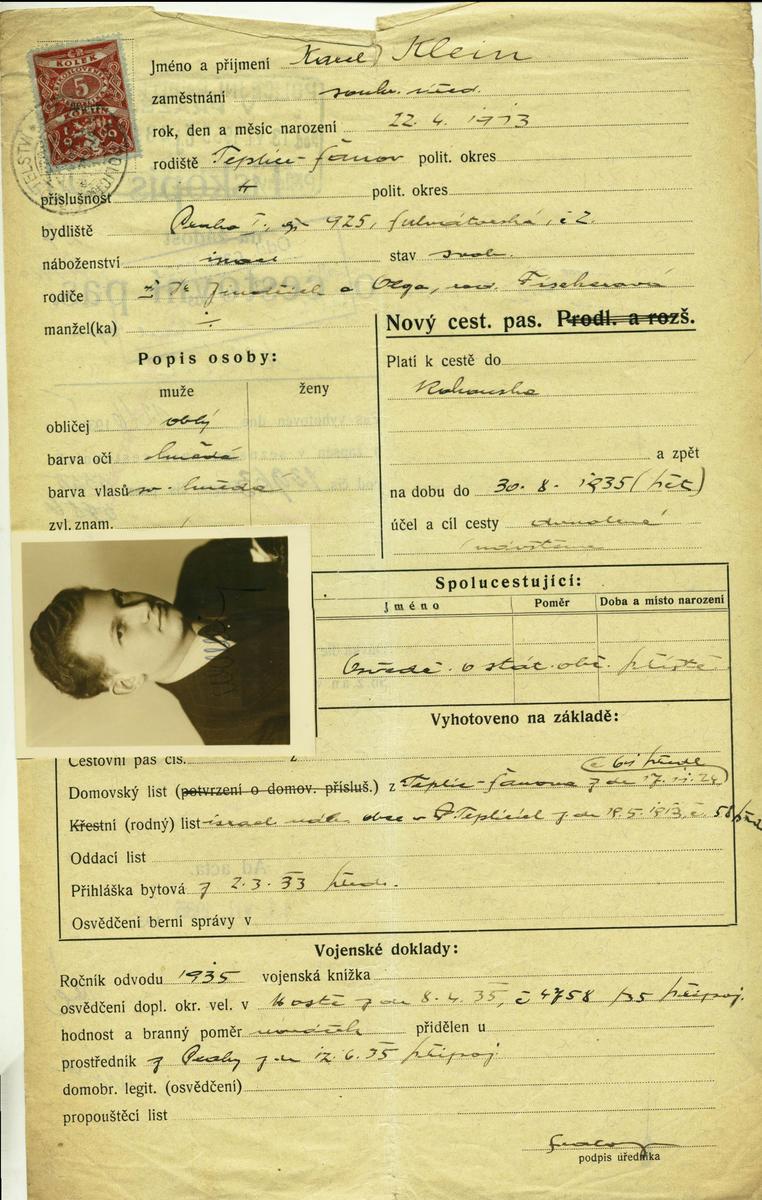 KOLEK
5
Jméno a příjmení Karel Klein
zaměstnání soukr. úřed.
rok, den a měsíc narození 22. 4. 1913
rodiště Teplice-Šanov polit. okres
příslušnost " polit. okres
bydliště Praha I., čp 925, č 2.
náboženství stav svob.
rodiče a Olga, roz. Fischerová
manžel(ka) ÷
Nový cest. pas. Prodl. a rozš.
Popis osoby:
muže ženy
obličej oblý
barva očí hnědá
barva vlasů hnědá
zvl. znam.
Platí k cestě do
Rakouska
a zpět
na dobu do 30. 8. 1935 (pět)
účel a cíl cesty dovolená
Spolucestující:
Jméno Poměr Doba a místo narození
Osvědč. o stát. obč.
Vyhotoveno na základě:
Cestovní pas čís. z
Domovský list (potvrzení o domov. přísluš.) z Teplic-Šanova z de 17. 11. 24
Křestní (rodný) list israel. náb. obce v Teplicích z de 19. 5. 1913, č. 58
Oddací list
Přihláška bytová z 2. 3. 33
Osvědčení berní správy v
Vojenské doklady:
Ročník odvodu 1935 vojenská knížka
osvědčení dopl. okr. vel. v Mostě z de 8. 4. 35, č 4758 /35 připoj.
hodnost a branný poměr přidělen u
prostředník z Prahy z de 12. 6. 35 připoj.
domobr. legit. (osvědčení)
propouštěcí list
podpis úředníka